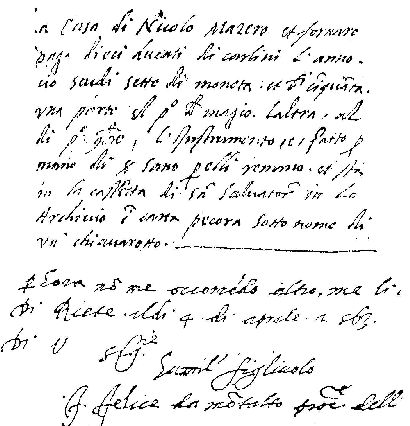 a Casa di Nicolo Mazero et fornaro
paga dieci ducati di carlini l'anno
cio scudi sette di moneta et
una parte al p.º di magio. l'altra, al
di p.º, l'Instrumento, e fatto p
mano di sano pelli et sta
in la cassetta di Salvator in lo
Archivio carta pecora sotto nome di
un chiavarotto.
p hora nō me occorrēdo altro, me li
Di Riete aldi 4 di aprile 1565
Di V S
Humil' figliuolo
F. felice da mōtalto dell